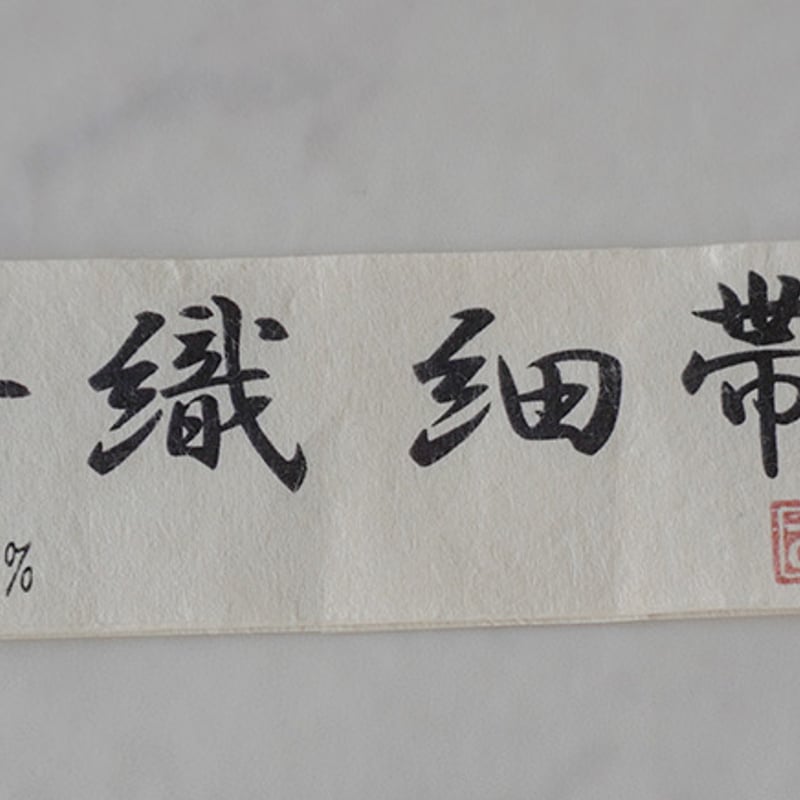 織細帯
%